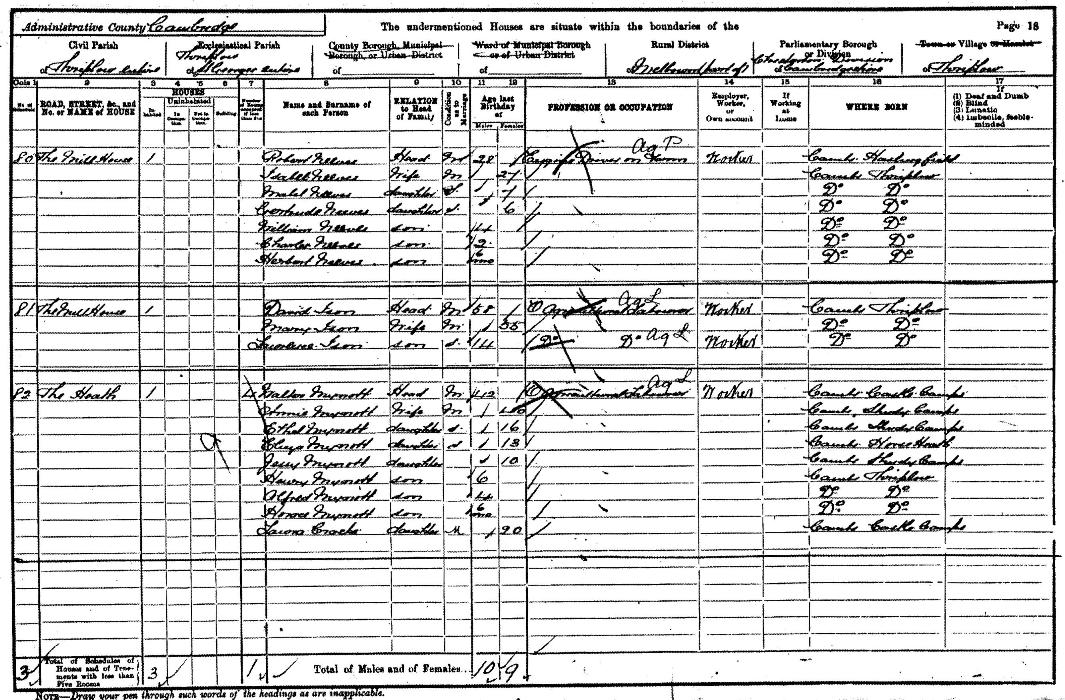 Administrative County Cambridge The undermentioned Houses are situate within the boundaries of the Page 18
Civil Parish Ecclesiastical Parish County Borough, Municipal Borough, or Urban District Ward of Municipal Borough or of Urban District Rural District Parliamentary Borough or Division Town or Village or Hamlet
of Thriplow of Thriplow St George of of of Melbourn part of of Chesterton Division Cambridgeshire of Thriplow
Cols 1 2 3 4 5 6 7 8 9 10 11 12 13 14 15 16 17
No. of Schedule ROAD, STREET, &c., and No. or NAME of HOUSE HOUSES Inhabited Uninhabited In Occupation Not in Occupation Building Name and Surname of each Person RELATION to Head of Family Condition as to Marriage Age last Birthday of Males Females PROFESSION OR OCCUPATION Employer, Worker, or Own account If Working at Home WHERE BORN If (1) Deaf and Dumb (2) Blind (3) Lunatic (4) Imbecile, feeble-minded
80 The Mill House 1 Robert Neeves Head M 28 Engine Driver on Farm Ag P Worker Cambs Haslingfield
Isabel Neeves Wife M 27 Cambs Thriplow
Mabel Neeves daughter S 7 Do Do
Gertrude Neeves daughter S. 6 Do Do
William Neeves son 4 Do Do
Charles Neeves son 2 Do Do
Herbert Neeves son 6 mo Do Do
81 The Mill House 1 David Ison Head M 58 Agricultural Labourer Ag L Worker Cambs Thriplow
Mary Ison Wife M 55 Do Do
Lawrence Ison son S. 14 Do Do Ag L Worker Do Do
82 The Heath 1 4 Walter Mynott Head M 42 Agricultural Labourer Ag L Worker Cambs Castle Camps
Annie Mynott Wife M 40 Cambs Shudy Camps
Ethel Mynott daughter S. 16 Cambs Shudy Camps
Eliza Mynott daughter S 13 Cambs Horse Heath
Jessy Mynott daughter 10 Cambs Shudy Camps
Henry Mynott son 6 Cambs Thriplow
Alfred Mynott son 4 Do Do
Horace Mynott son 6 mo Do Do
Laura daughter M 20 Cambs Castle Camps
3 Total of Schedules of Houses and of Tenements with less than Five Rooms 3 1 Total of Males and of Females... 10 9
NOTE—Draw your pen through such words of the headings as are inapplicable.